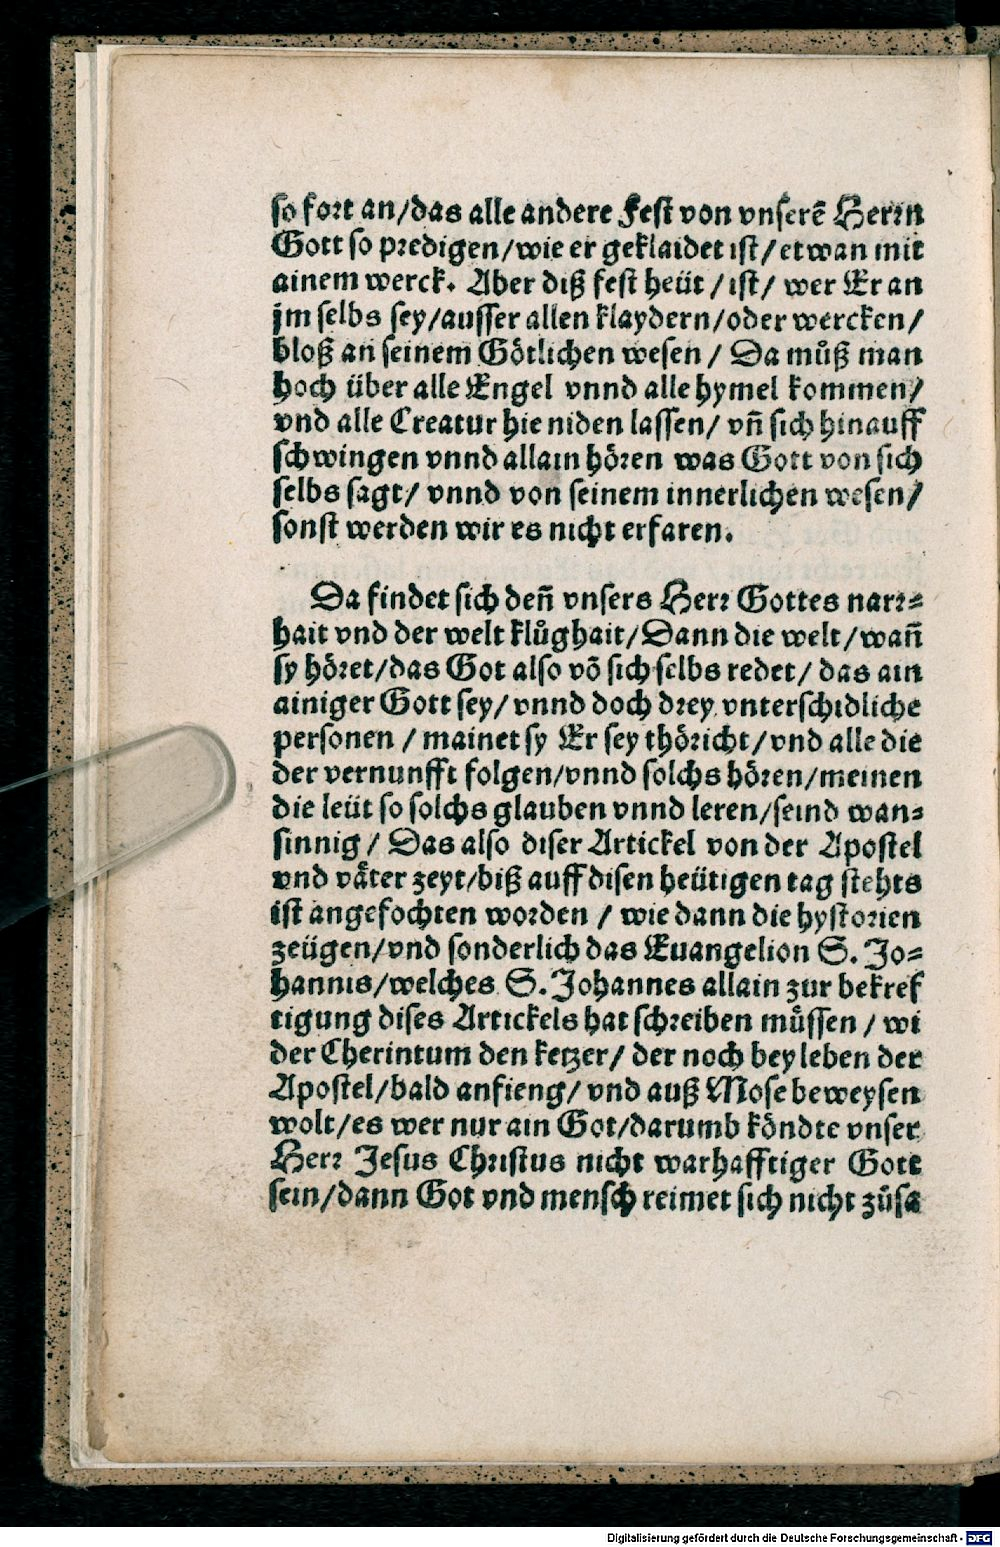 so fort an/das alle andere Fest von vnserẽ Herrn
Gott so predigen/wie er geklaidet ist/etwan mit
ainem werck. Aber diß fest heüt/ist/ wer Er an
jm selbs sey/ausser allen klaydern/oder wercken/
bloß an seinem Götlichen wesen/ Da můß man
hoch über alle Engel vnnd alle hymel kommen/
vnd alle Creatur hie niden lassen/ vñ sich hinauff
schwingen vnnd allain hören was Gott von sich
selbs sagt/ vnnd von seinem innerlichen wesen/
sonst werden wir es nicht erfaren.
Da findet sich deñ vnsers Herr Gottes narr-
hait vnd der welt klůghait/Dann die welt/wañ
sy höret/das Got also võ sich selbs redet/ das ain
ainiger Gott sey/ vnnd doch drey vnterschidliche
personen / mainet sy Er sey thöricht/vnd alle die
der vernunfft folgen/vnnd solchs hören/meinen
die leüt so solchs glauben vnnd leren/seind wan-
sinnig / Das also diser Artickel von der Apostel
vnd väter zeyt/biß auff disen heütigen tag stehts
ist angefochten worden / wie dann die hystorien
zeügen/vnd sonderlich das Euangelion S. Jo-
hannis/welches S. Johannes allain zur bekref
tigung dises Artickels hat schreiben müssen / wi
der Cherintum den ketzer/ der noch bey leben der
Apostel/bald anfieng/ vnd auß Mose beweysen
wolt/es wer nur ain Got/darumb köndte vnser
Herr Jesus Christus nicht warhafftiger Gott
sein/dann Got vnd mensch reimet sich nicht zůsa
Digitalisierung gefördert durch die Deutsche Forschungsgemeinschaft - DFG